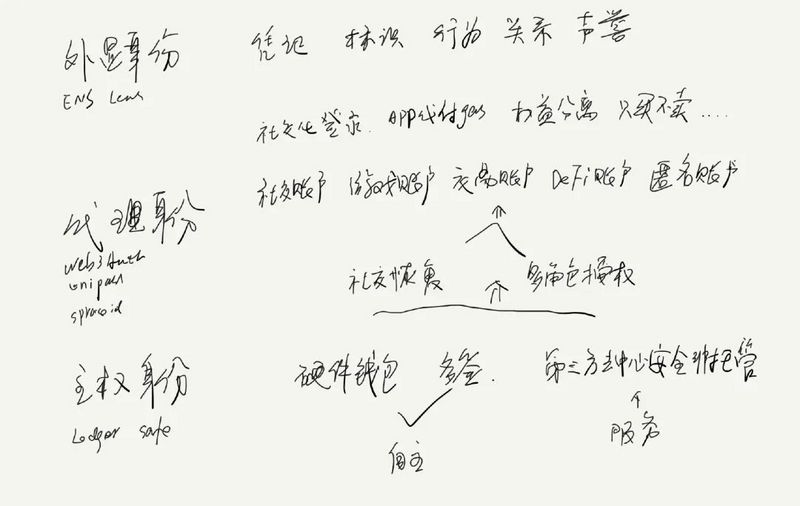 外显身份 凭记 标识 行为 关系 声誉
ENS Lens
社交化登录 APP代付gas 权益分离 只买不卖....
社交账户 游戏账户 交易账户 DeFi账户 匿名账户
代理身份
web3Auth
unipass
社交恢复 多角色授权
主权身份 硬件钱包 多签. 第三方去中心安全非托管
Ledger safe
服务
自主